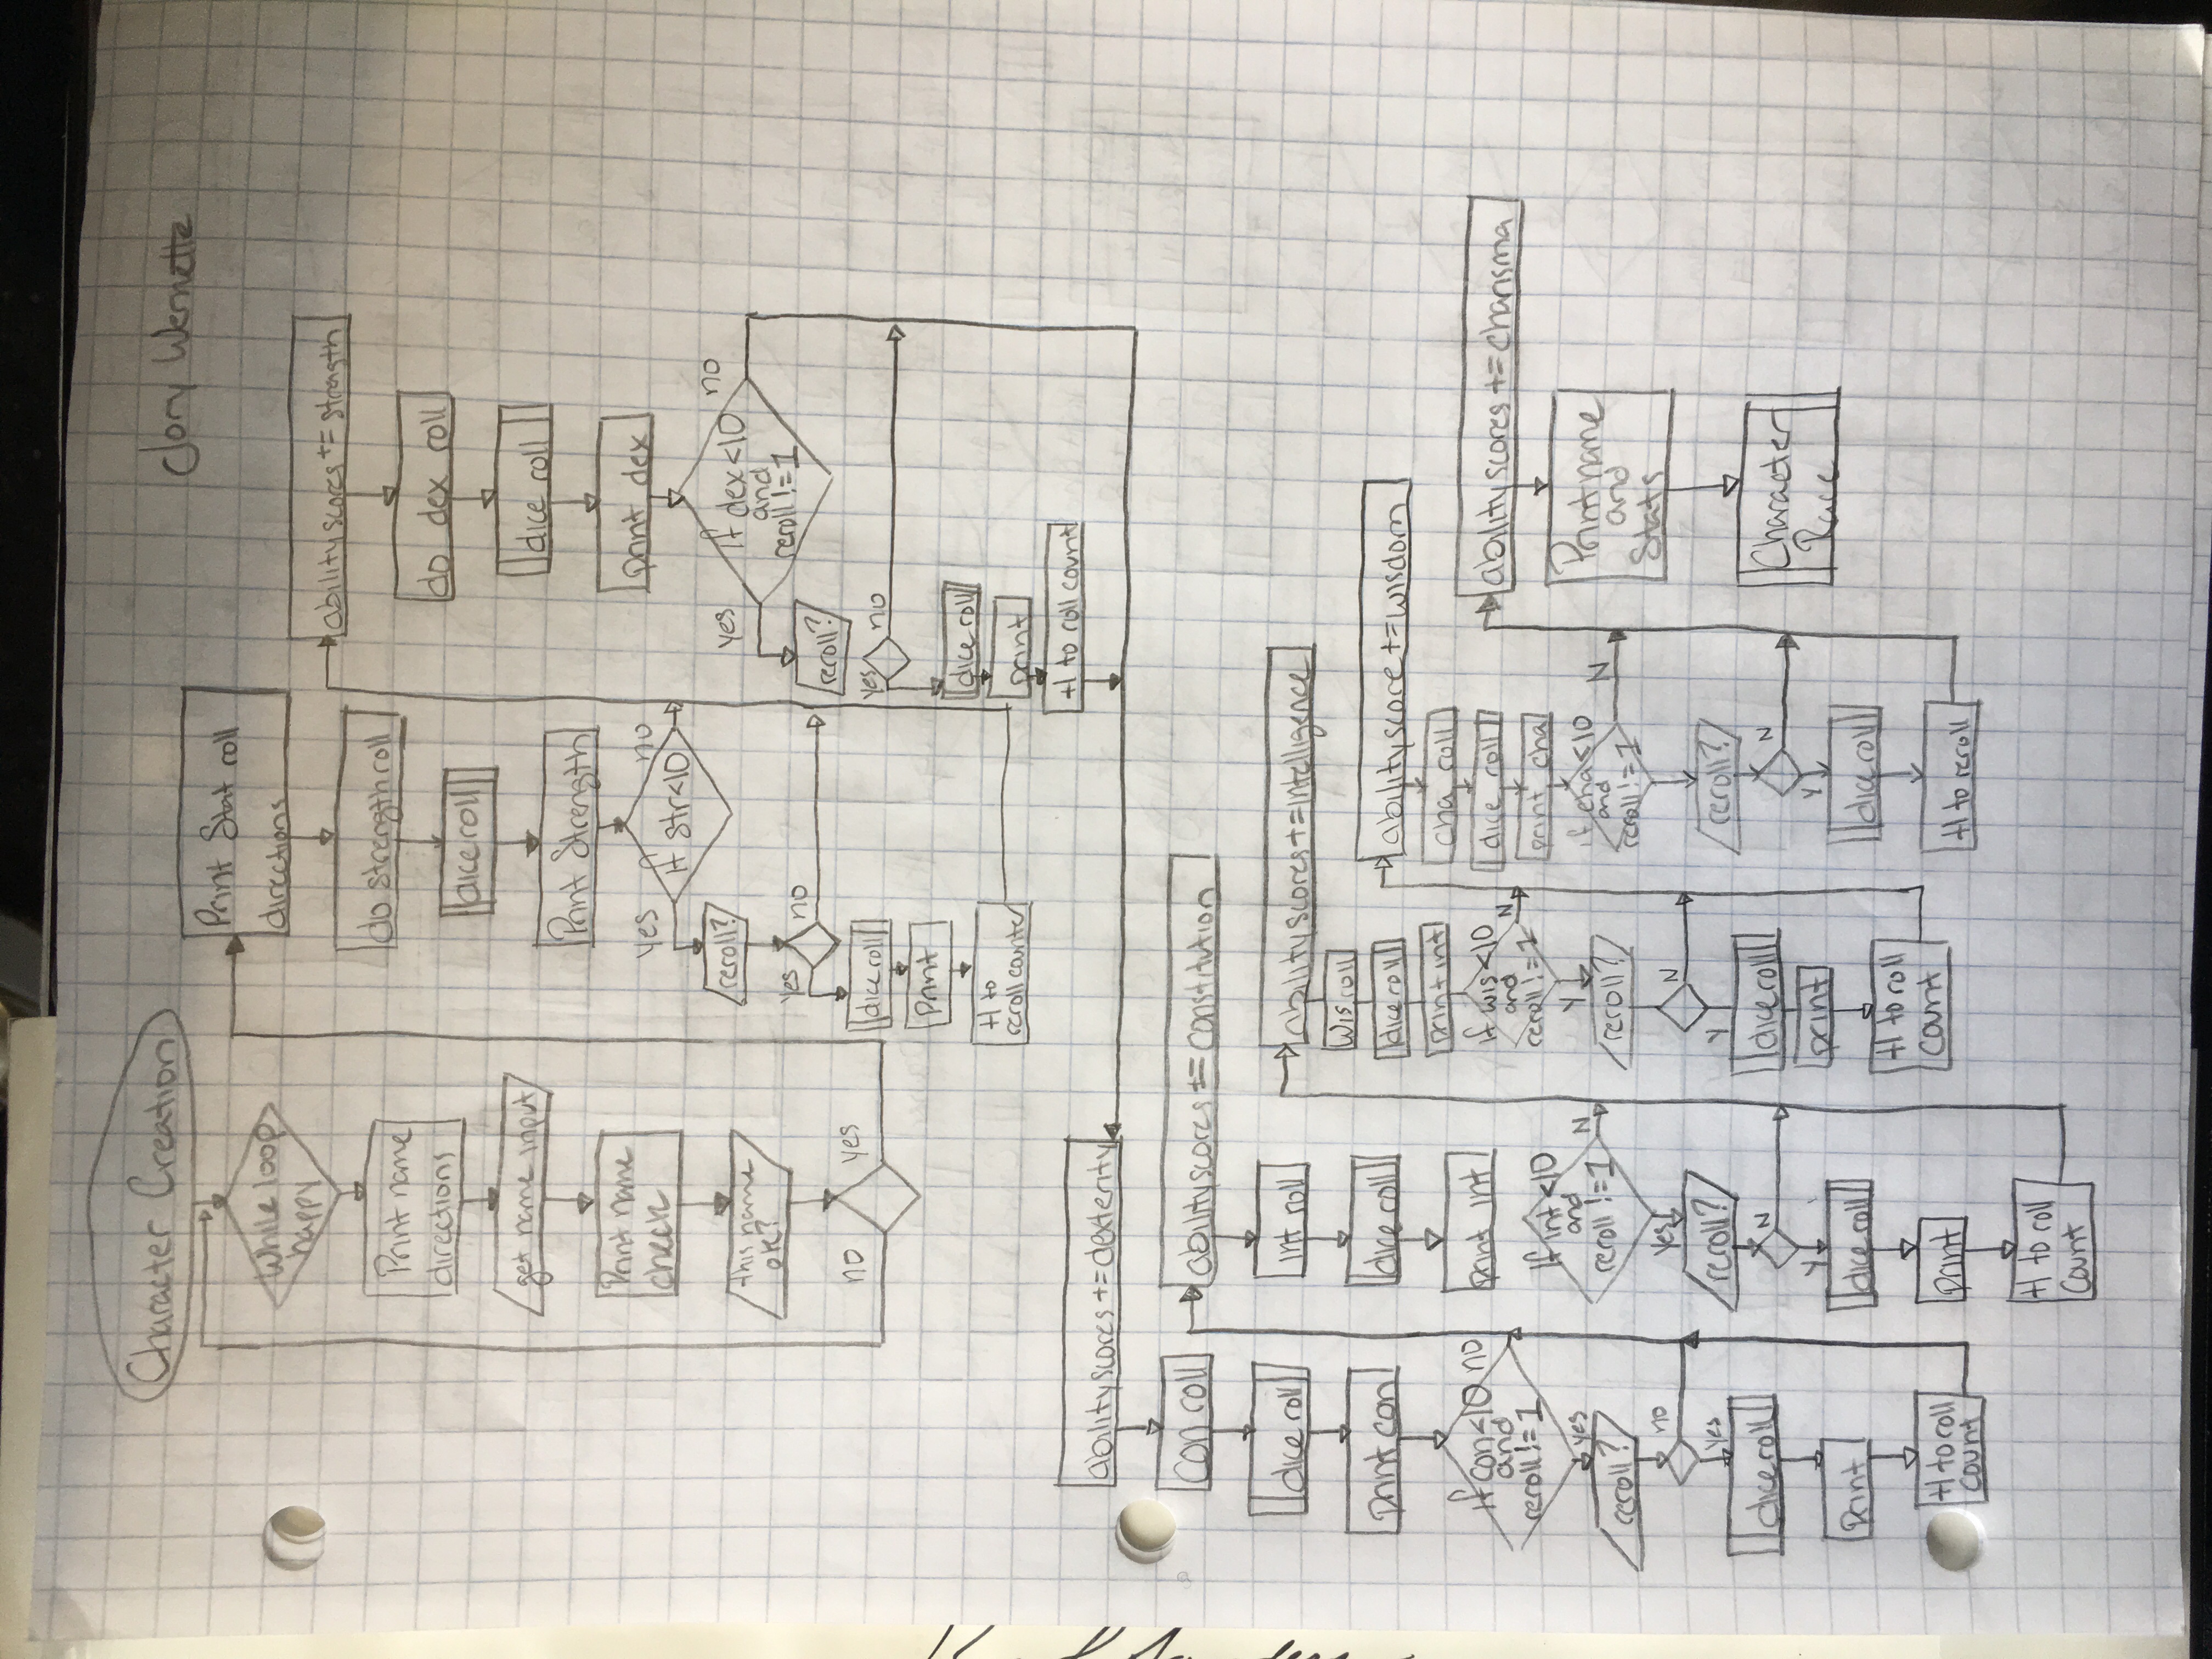 Character Creation
Jory Wernette
While loop
happy
Print name
directions
get name input
Print name
check
this name
ok?
no
yes
Print Stat roll
directions
do strength roll
dice roll
Print Strength
yes
no
If str<10
reroll?
yes
no
dice roll
Print
+1 to
reroll counter
ability scores += strength
do dex roll
dice roll
print dex
yes
no
If dex<10
and
reroll != 1
reroll?
yes
no
dice roll
print
+1 to roll count
ability scores += dexterity
Con roll
dice roll
print con
If con<10
and
reroll != 1
no
yes
reroll?
no
yes
dice roll
Print
+1 to roll
count
ability scores += constitution
int roll
dice roll
print int
If int<10
and
reroll != 1
N
Yes
reroll?
N
Y
dice roll
print
+1 to roll
Count
ability scores += intelligence
Wis roll
dice roll
print int
If wis<10
and
reroll != 1
N
Y
reroll?
N
Y
dice roll
print
+1 to roll
count
ability score += wisdom
cha roll
dice roll
print cha
if cha<10
and
reroll != 1
N
reroll?
N
Y
dice roll
+1 to reroll
ability scores += charisma
Print name
and
Stats
Character
Race